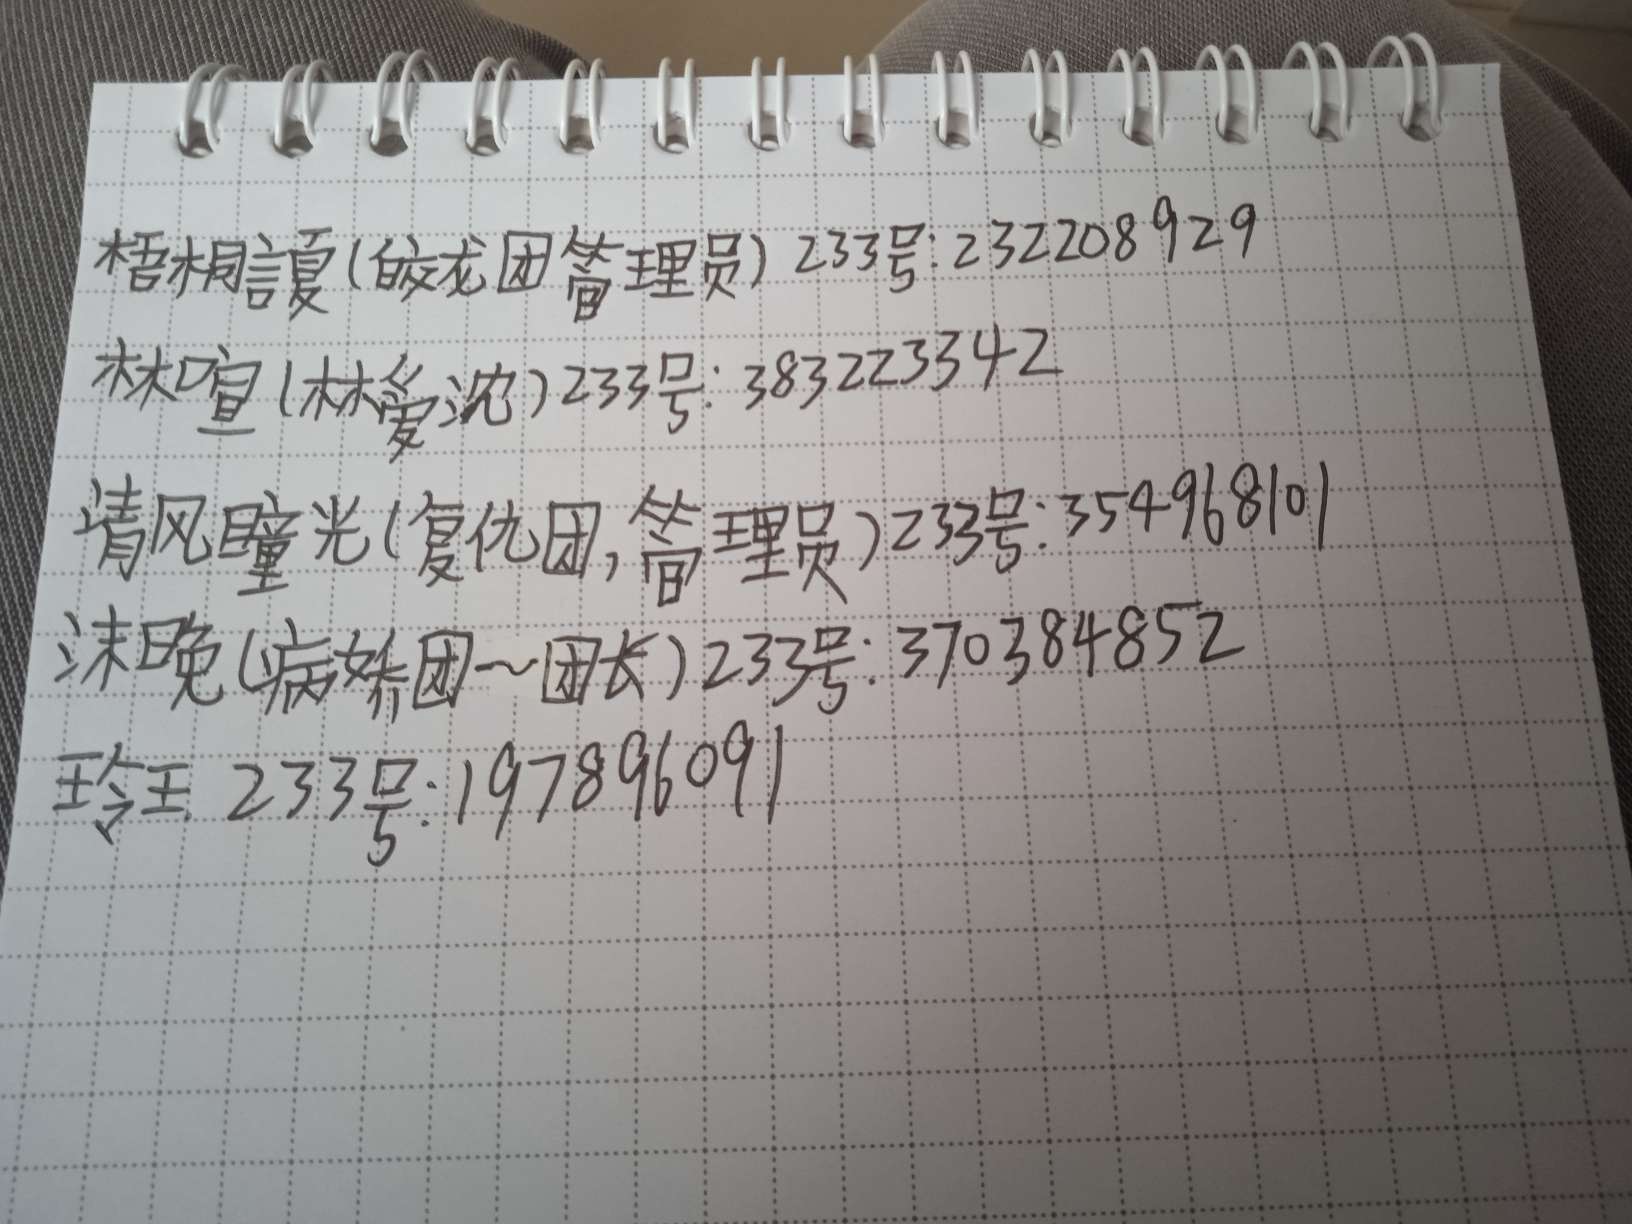 梧桐謖(皎龙团管理员) 233号:232208929
林喧(林爱沈)233号:383223342
清风瞳光(复仇团,管理员)233号:354968101
沫晚(病娇团～团长)233号:370384852
玲王 233号:197896091